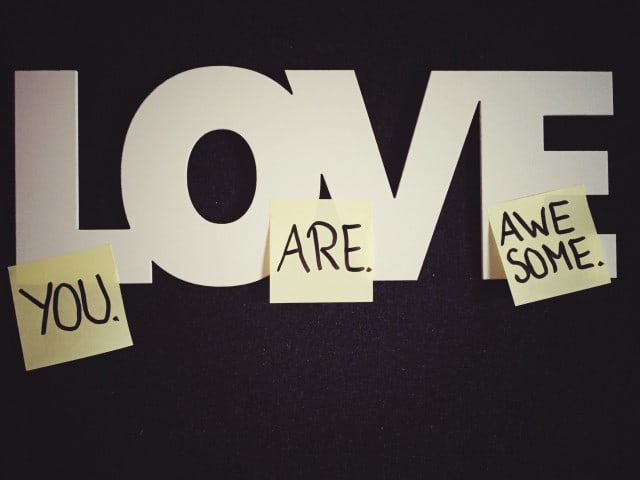 LOVE
YOU.
ARE.
AWE
SOME.